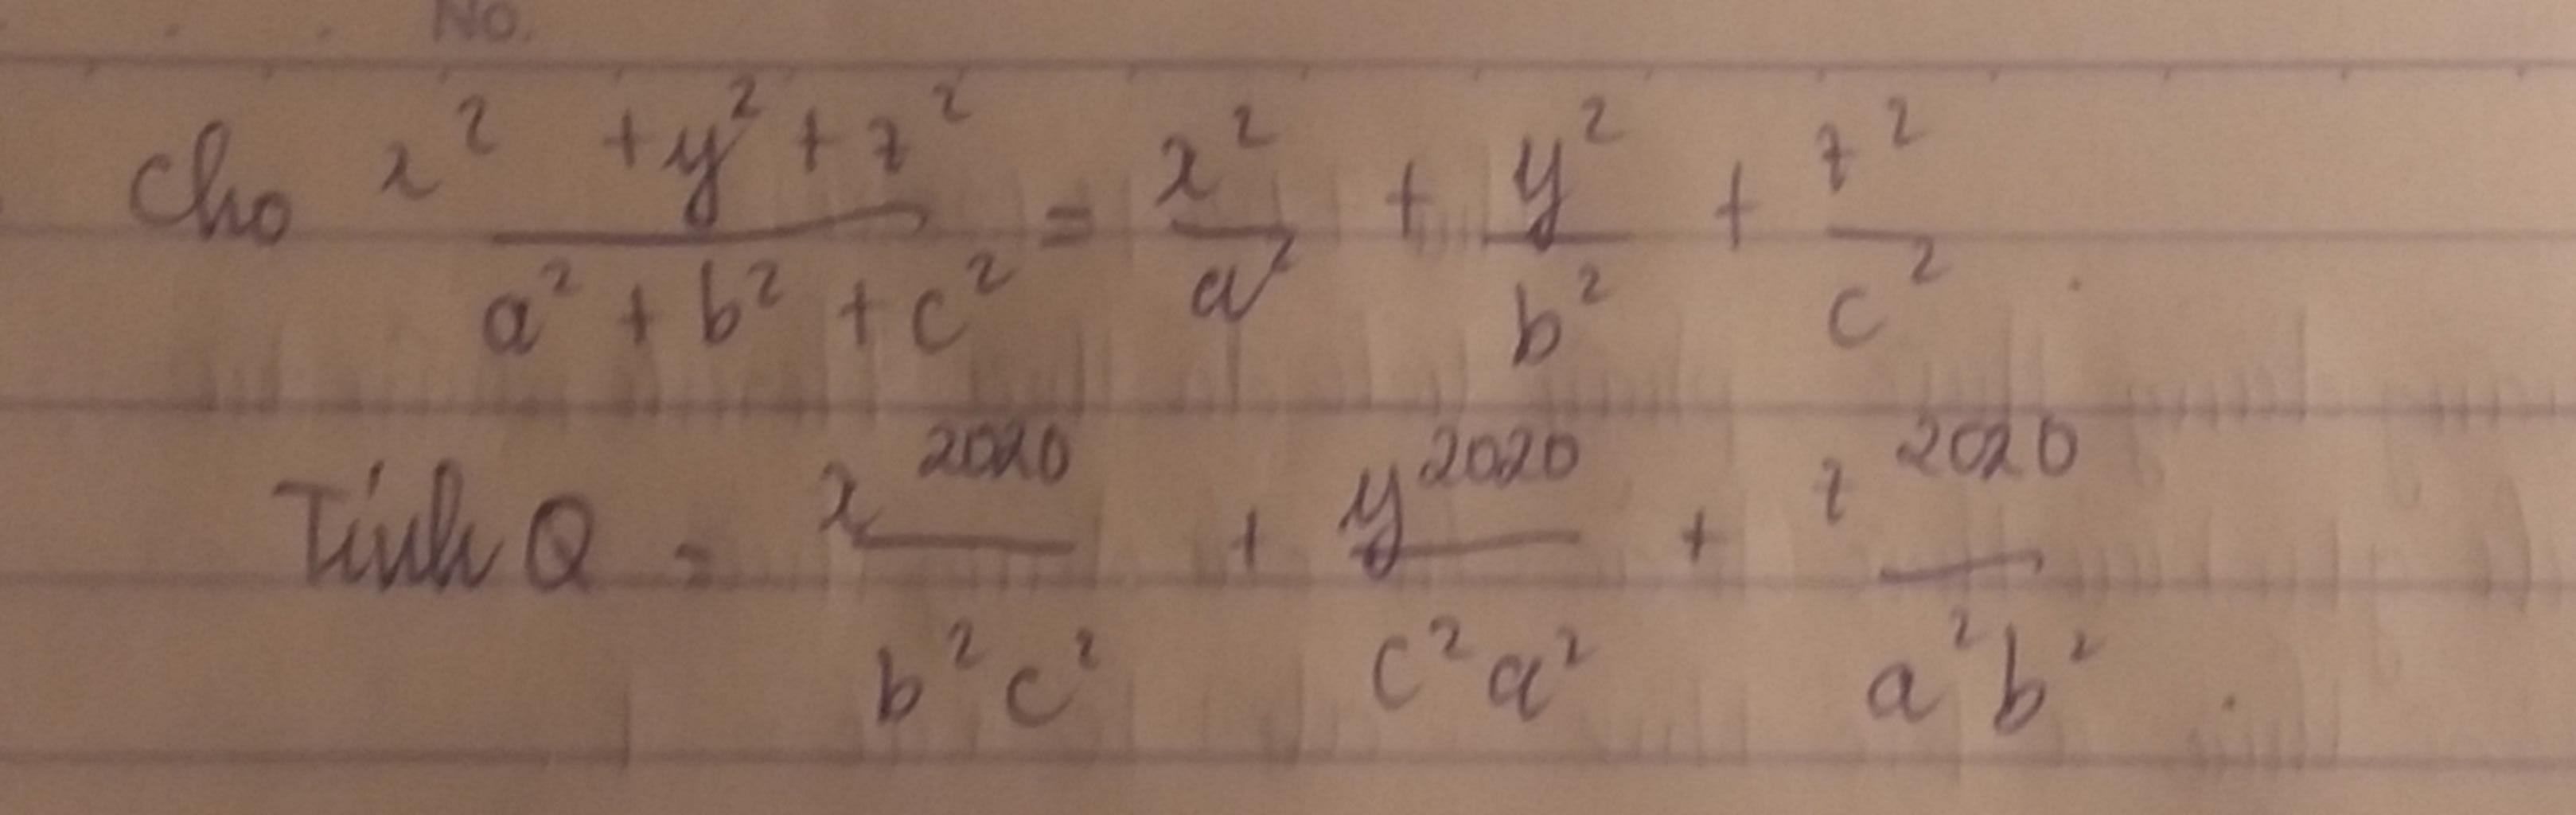 No.
Cho (x² + y² + z²)/(a² + b² + c²) = x²/a² + y²/b² + z²/c².
Tính Q = x²⁰²⁰/(b²c²) + y²⁰²⁰/(c²a²) + z²⁰²⁰/(a²b²).